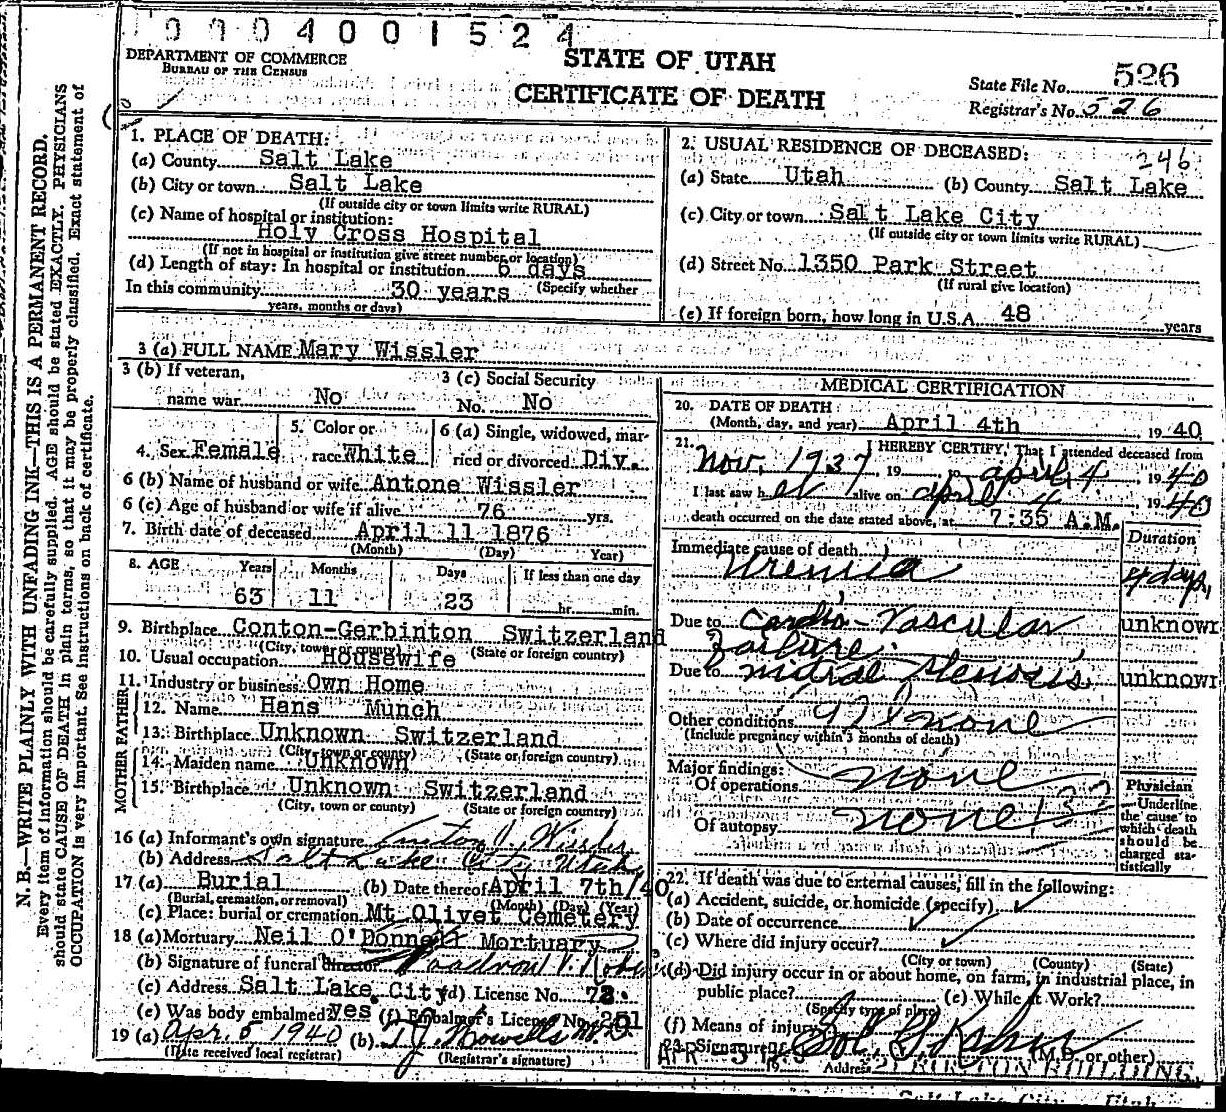 0004001524
DEPARTMENT OF COMMERCE
BUREAU OF THE CENSUS
STATE OF UTAH
CERTIFICATE OF DEATH
State File No. 526
Registrar's No. 526
N. B.—WRITE PLAINLY WITH UNFADING INK—THIS IS A PERMANENT RECORD.
Every item of information should be carefully supplied. AGE should be stated EXACTLY. PHYSICIANS
should state CAUSE OF DEATH in plain terms, so that it may be properly classified. Exact statement of
OCCUPATION is very important. See instructions on back of certificate.
1. PLACE OF DEATH:
(a) County Salt Lake
(b) City or town Salt Lake
(If outside city or town limits write RURAL)
(c) Name of hospital or institution:
Holy Cross Hospital
(If not in hospital or institution give street number or location)
(d) Length of stay: In hospital or institution 6 days
(Specify whether
In this community 30 years
years, months or days)
2. USUAL RESIDENCE OF DECEASED: 246
(a) State Utah (b) County Salt Lake
(c) City or town Salt Lake City
(If outside city or town limits write RURAL)
(d) Street No. 1350 Park Street
(If rural give location)
(e) If foreign born, how long in U.S.A. 48 years
3 (a) FULL NAME Mary Wissler
3 (b) If veteran, name war No
3 (c) Social Security No. No
4. Sex Female
5. Color or race White
6 (a) Single, widowed, married or divorced Div.
6 (b) Name of husband or wife Antone Wissler
6 (c) Age of husband or wife if alive 76 yrs.
7. Birth date of deceased April 11 1876
(Month) (Day) (Year)
8. AGE Years Months Days If less than one day
63 11 23 hr. min.
9. Birthplace Conton-Gerbinton Switzerland
(City, town or county) (State or foreign country)
10. Usual occupation Housewife
11. Industry or business Own Home
FATHER
12. Name Hans Munch
13. Birthplace Unknown Switzerland
(City, town or county) (State or foreign country)
MOTHER
14. Maiden name Unknown
15. Birthplace Unknown Switzerland
(City, town or county) (State or foreign country)
16 (a) Informant's own signature Anton J. Wissler
(b) Address Salt Lake City Utah
17 (a) Burial (b) Date thereof April 7th/40
(Burial, cremation, or removal) (Month) (Day) (Year)
(c) Place: burial or cremation Mt Olivet Cemetery
18 (a) Mortuary Neil O'Donnell Mortuary
(b) Signature of funeral director
(c) Address Salt Lake City (d) License No. 72.
(e) Was body embalmed? Yes (f) Embalmer's License No. 201
19 (a) Apr. 5 1940 (b) T.J. Howells M.D.
(Date received local registrar) (Registrar's signature)
MEDICAL CERTIFICATION
20. DATE OF DEATH:
(Month, day, and year) April 4th 1940
21. I HEREBY CERTIFY, That I attended deceased from
Nov. 1937 19 to april 4, 1940
I last saw her alive on april 4 1940
death occurred on the date stated above, at 7:35 A.M.
Duration
Immediate cause of death
Uremia 4 days,
Due to Cardio-Vascular unknown
Failure
Due to mitral Stenosis unknown
Other conditions none
(Include pregnancy within 3 months of death)
Major findings:
Of operations none
Of autopsy none
Physician
Underline
the cause to
which death
should be
charged sta-
tistically
22. If death was due to external causes, fill in the following:
(a) Accident, suicide, or homicide (specify)
(b) Date of occurrence
(c) Where did injury occur?
(City or town) (County) (State)
(d) Did injury occur in or about home, on farm, in industrial place, in
public place? (e) While at Work?
(Specify type of place)
(f) Means of injury
23. Signature
(M.D. or other)
APR 5
19 Address BUILDING
Salt Lake City, Utah